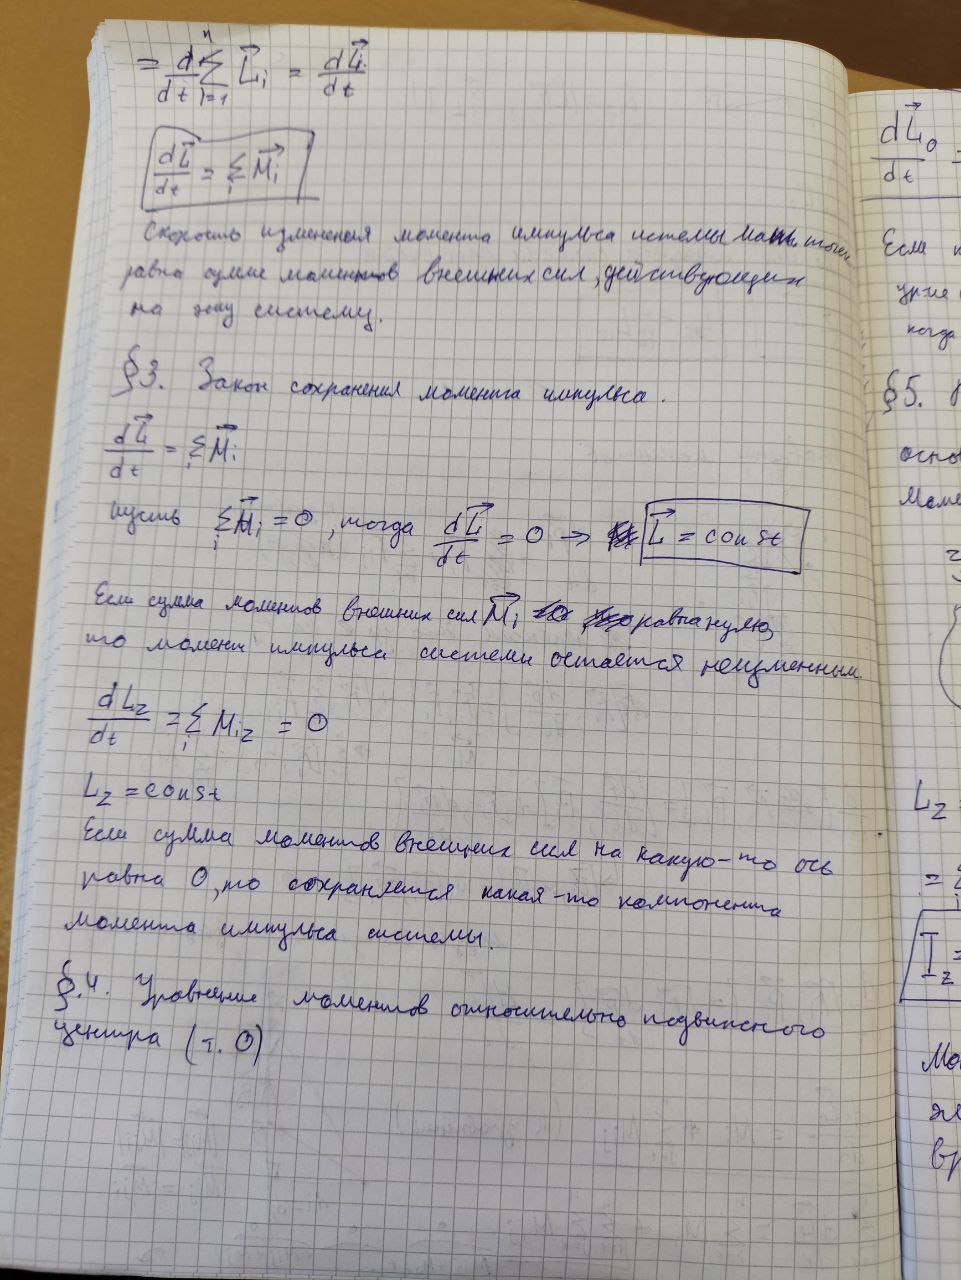 = d/dt n Σ i=1 L⃗i = dL⃗i/dt
dL⃗/dt = Σi M⃗i
Скорость изменения момента импульса истемы мат. точек
равна сумме моментов внешних сил, действующих
на эту систему.
§3. Закон сохранения момента импульса.
dL⃗/dt = Σi M⃗i
пусть Σi M⃗i = 0, тогда dL⃗/dt = 0 → L⃗ = const
Если сумма моментов внешних сил M⃗i равна нулю,
то момент импульса системы остается неизменным.
dLz/dt = Σi Miz = 0
Lz = const
Если сумма моментов внешних сил на какую-то ось
равна 0, то сохраняется какая-то компонента
момента импульса системы.
§.4. Уравнение моментов относительно подвижного
центра (т. O)
dL⃗o/dt =
Если
ур-ие
когда
§5.
осно
Моме
Lz =
=
Iz =
Мо